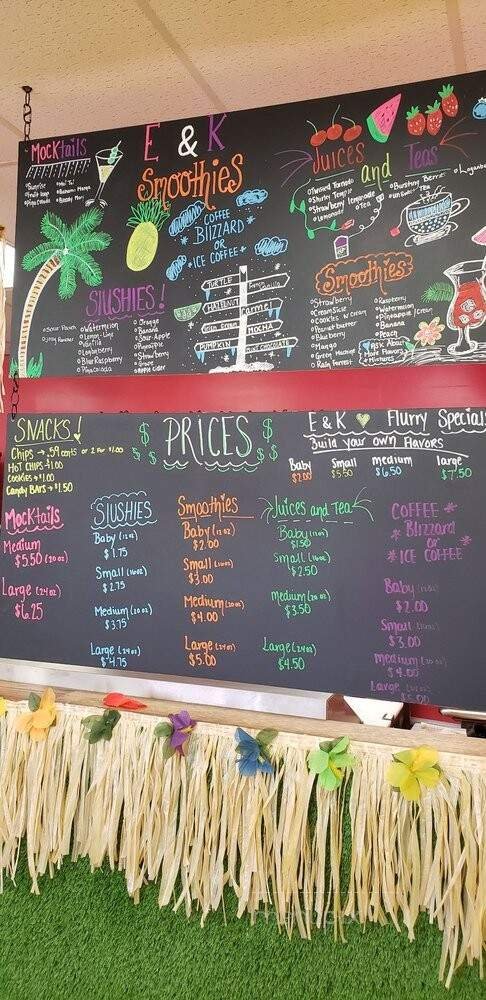 Mocktails
Sunrise
Mai Tai
Fruit Loop
Bahama Mama
Pina Colada
Bloody Mary
E & K
Smoothies
Coffee
Blizzard
or
Ice Coffee
Juices and Teas
Strawberry Lemonade
Lemonade
Tea
Tea
Slushies!
Sour Patch
Watermelon
Lemon-Lime
Vanilla
Loganberry
Blue Raspberry
Pina Colada
Orange
Banana
Sour Apple
Pineapple
Strawberry
Grape
Apple Cider
Turtle
Hazelnut
Caramel
Mocha
Pumpkin
Smoothies
Strawberry
Creamsicle
Cookies n Cream
Peanut butter
Blueberry
Mango
Green Machine
Rain Forrest
Raspberry
Watermelon
Pineapple/Cream
Banana
Peach
Ask About
More Flavors
+ Mixtures
SNACKS!
Chips → .59 cents or 2 for $1.00
Hot Chips → $1.00
Cookies → $1.00
Candy Bars → $1.50
$ $ $ PRICES $ $ $
E & K Flurry Specials
Build your own Flavors
Baby Small medium large
$2.00 $5.50 $6.50 $7.50
Mocktails
Medium
$5.50 (20oz)
Large (24oz)
$6.25
Slushies
Baby (12oz)
$1.75
Small (16oz)
$2.75
Medium (20oz)
$3.75
Large (24oz)
$4.75
Smoothies
Baby (12oz)
$2.00
Small (16oz)
$3.00
Medium (20oz)
$4.00
Large (24oz)
$5.00
Juices and Tea
Baby (12oz)
$1.50
Small (16oz)
$2.50
Medium (20oz)
$3.50
Large (24oz)
$4.50
COFFEE
Blizzard
or
ICE COFFEE
Baby (12oz)
$2.00
Small (16oz)
$3.00
Medium (20oz)
$4.00
Large (24oz)
$5.00